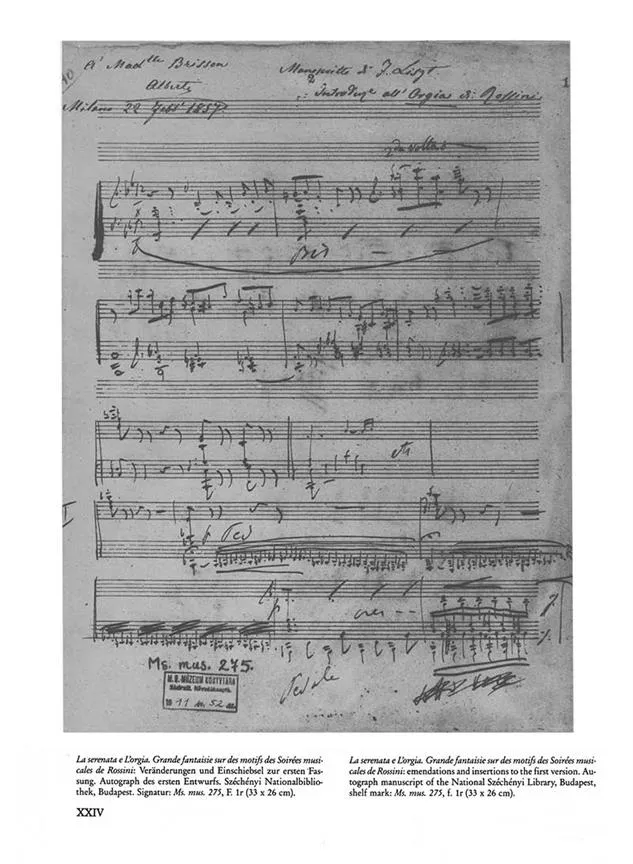 A' Mad^lle Brisson
Manoscritto di F. Liszt.
1
Introduz^e all'Orgia di Rossini
Milano 22
Bis
Ped
cres - -
Pedale
Ms. mus. 275.
M. N. MÚZEUM KÖNYVTÁRA
1911 52
La serenata e L'orgia. Grande fantaisie sur des motifs des Soirées musi-
cales de Rossini: Veränderungen und Einschiebsel zur ersten Fas-
sung. Autograph des ersten Entwurfs. Széchényi Nationalbiblio-
thek, Budapest. Signatur: Ms. mus. 275, F. 1r (33 x 26 cm).
La serenata e L'orgia. Grande fantaisie sur des motifs des Soirées musi-
cales de Rossini: emendations and insertions to the first version. Au-
tograph manuscript of the National Széchényi Library, Budapest,
shelf mark: Ms. mus. 275, f. 1r (33 x 26 cm).
XXIV